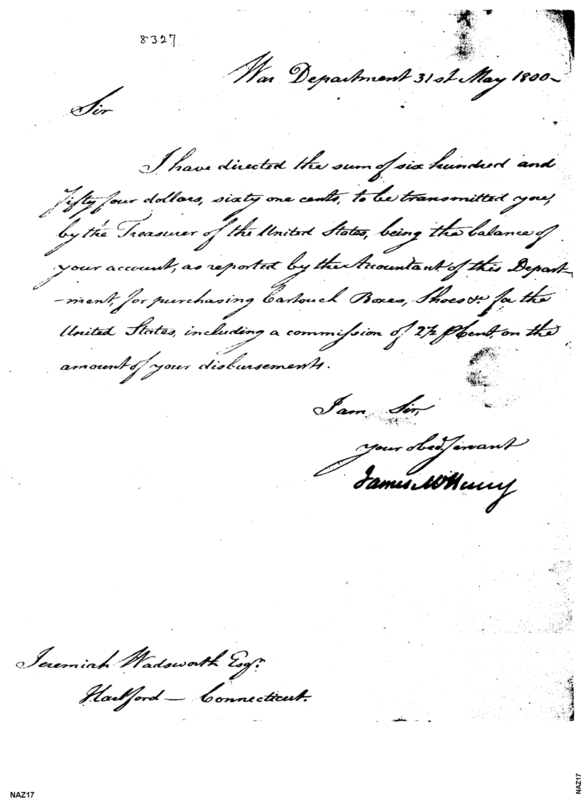 8327
War Department 31st May 1800—
Sir
I have directed the sum of six hundred and
fifty four dollars, sixty one cents, to be transmitted you,
by the Treasurer of the United States, being the balance of
your account, as reported by the Accountant of this Depart
-ment, for purchasing Cartouch Boxes, Shoes &c. for the
United States, including a commission of 2½ ⅌ Cent, on the
amount of your disbursements.
I am Sir,
your obed. servant
James McHenry
Jeremiah Wadsworth Esqr.
Hartford — Connecticut.
NAZ17
NAZ17